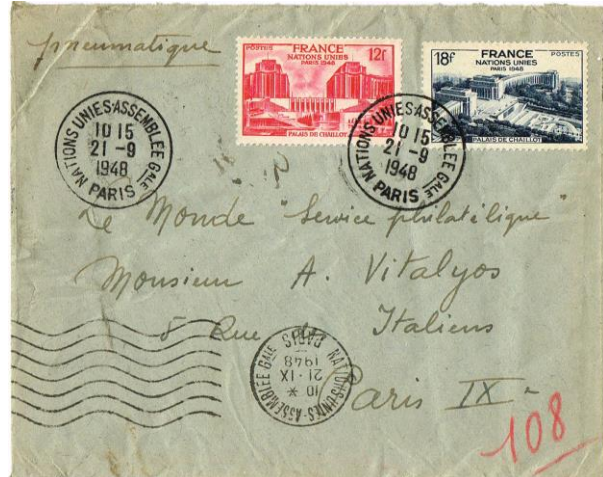 pneumatique
POSTES FRANCE 12f
NATIONS UNIES
PARIS 1948
PALAIS DE CHAILLOT
18f FRANCE POSTES
NATIONS UNIES
PARIS 1948
PALAIS DE CHAILLOT
NATIONS UNIES-ASSEMBLEE GALE
10 15
21 -9
1948
PARIS
NATIONS UNIES-ASSEMBLEE GALE
10 15
21 -9
1948
PARIS
Le Monde "Service philatélique"
Monsieur A. Vitalyos
5 Rue des Italiens
Paris IXe
NATIONS UNIES-ASSEMBLEE GALE
10 *
21 · IX
1948
PARIS
108